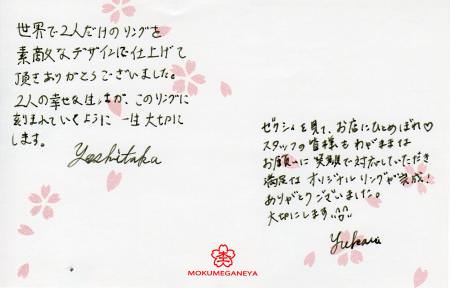 世界で2人だけのリングを
素敵なデザインで仕上げて
頂きありがとうございました。
2人の幸せな生活が、このリングに
刻まれていくように 一生 大切に
します。
Yoshitaka
ゼクシィを見て、お店にひとめぼれ♡
スタッフの皆様も わがままな
お願いに 笑顔で対応していただき
満足な オリジナルリングが完成!
ありがとうございました。
大切にします
Yukari
MOKUMEGANEYA